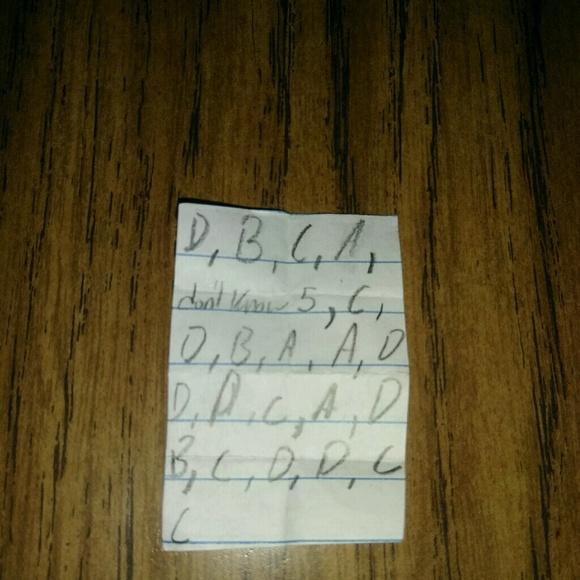 D, B, C, A,
don't know 5, C,
D, B, A, A, D
D, A, C, A, D
B, C, D, D, C
C